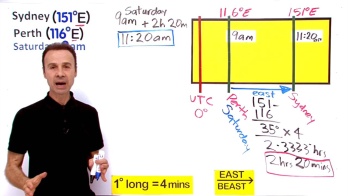 Sydney (151°E)
Perth (116°E)
Saturday am
Saturday
9am + 2h 20m
11:20am
116°E
151°E
9am
11:20am
east
UTC
0°
Perth
Saturday
Sydney
151-
116
35° x 4
2.3333 hrs
2hrs 20mins
1° long = 4 mins
EAST
BEAST